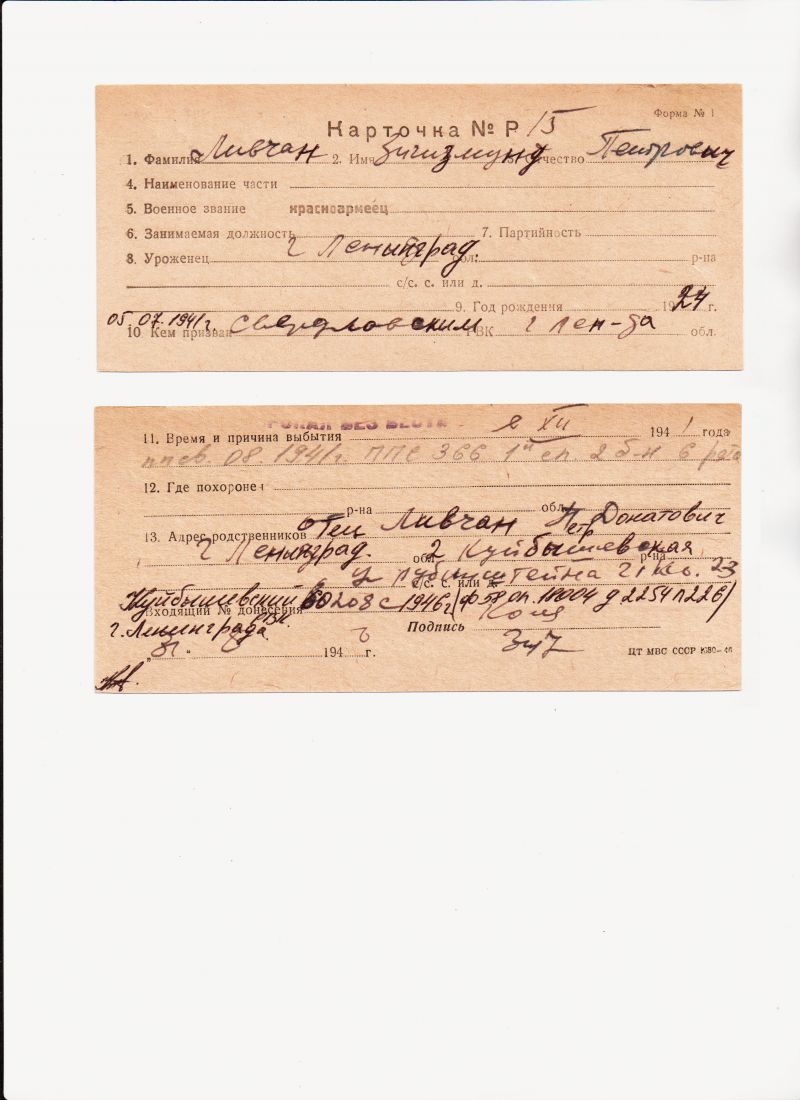 Форма № 1
Карточка № Р 15
1. Фамилия Ливчан 2. Имя Зигизмунд 3. Отчество Петрович
4. Наименование части
5. Военное звание красноармеец
6. Занимаемая должность 7. Партийность
8. Уроженец г Ленинград. обл. р-на
с/с. с. или д.
9. Год рождения 1924 г.
05.07.1941г. Свердловским г Лен-да
10. Кем призван РВК обл.
11. Время и причина выбытия БЕЗ ВЕСТИ XII 1941 года
08.1941г. ППС 366 1й сп. 2 б-н 6 рота
12. Где похоронен
р-на обл.
13. Адрес родственников Отец Ливчан Петр Донатович
г Ленинград. обл. Куйбышевская р-на
с/с. с. или д. ул Рубинштейна 21 кв. 23
Куйбышевский 60208 с 1946г (ф 58 оп. 18004 д 2254 л 226)
Входящий № донесения
г. Ленинграда РВК. Подпись
" 31 " 1946 г.
ЦТ МВС СССР 1080-46